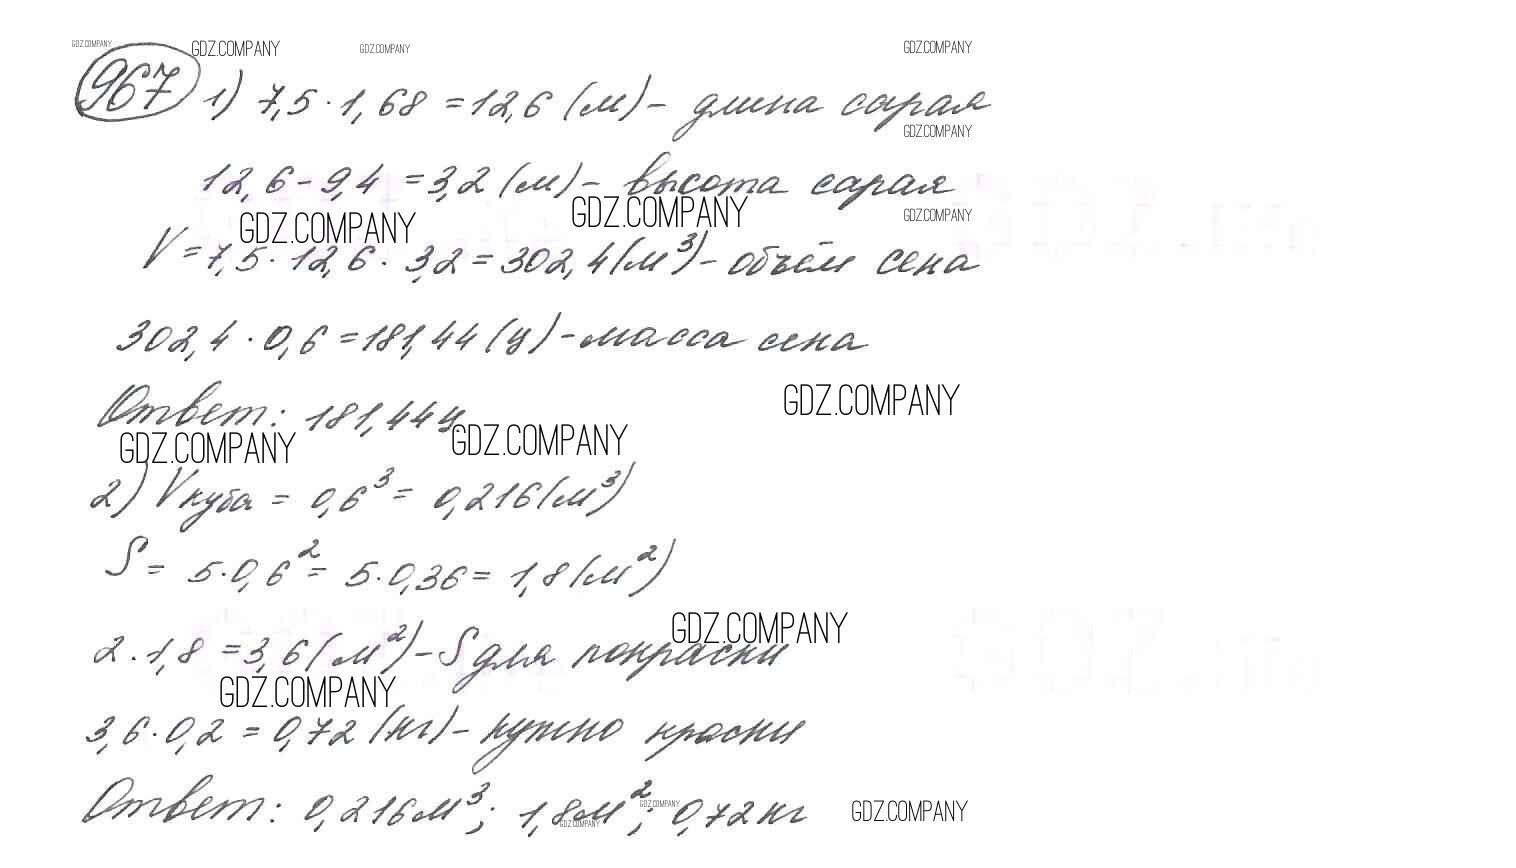 GDZ.COMPANY GDZ.COMPANY GDZ.COMPANY GDZ.COMPANY
967 1) 7,5 · 1,68 = 12,6 (м) – длина сарая
GDZ.COMPANY
12,6 – 9,4 = 3,2 (м) – высота сарая
GDZ.COMPANY GDZ.COMPANY GDZ.COMPANY
V = 7,5 · 12,6 · 3,2 = 302,4 (м³) – объём сена
302,4 · 0,6 = 181,44 (ц) – масса сена
Ответ: 181,44 ц.
GDZ.COMPANY
GDZ.COMPANY GDZ.COMPANY
2) Vкуба = 0,6³ = 0,216 (м³)
S = 5 · 0,6² = 5 · 0,36 = 1,8 (м²)
GDZ.COMPANY
2 · 1,8 = 3,6 (м²) – S для покраски
GDZ.COMPANY
3,6 · 0,2 = 0,72 (кг) – нужно краски
Ответ: 0,216 м³; 1,8 м²; 0,72 кг
GDZ.COMPANY GDZ.COMPANY
GDZ.COMPANY